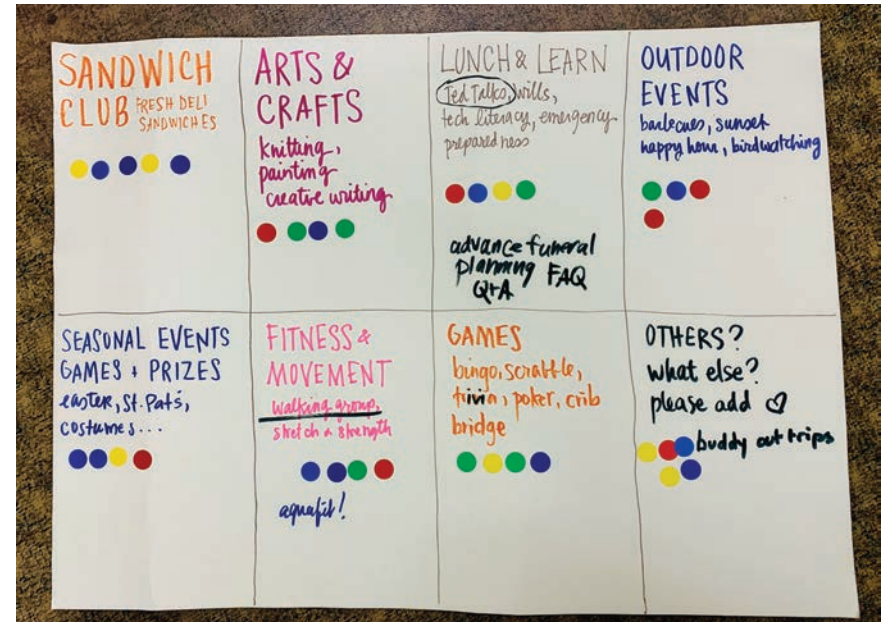 SANDWICH
CLUB FRESH DELI
SANDWICHES
ARTS &
CRAFTS
knitting,
painting
creative writing
LUNCH & LEARN
Ted Talks, wills,
tech literacy, emergency
preparedness
advance funeral
planning FAQ
Q+A
OUTDOOR
EVENTS
barbecues, sunset
happy hour, birdwatching
SEASONAL EVENTS
GAMES + PRIZES
easter, St. Pat's,
costumes...
FITNESS &
MOVEMENT
walking group,
stretch & strength
aquafit!
GAMES
bingo, scrabble,
trivia, poker, crib
bridge
OTHERS?
what else?
please add ♡
buddy out trips